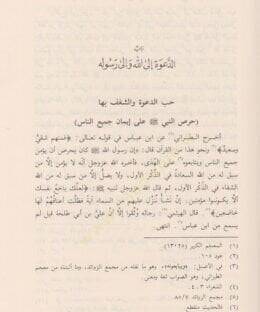 باب
الدعوة إلى الله وإلى رسوله
حب الدعوة والشغف بها
(حرص النبي ﷺ على إيمان جميع الناس)
أخرج الطبراني(١) عن ابن عباس في قوله تعالى: ﴿فمنهم شقيٌّ
وسعيد﴾(٢) ونحو هذا من القرآن قال: «إن رسول الله ﷺ كان يحرص أن يؤمن
جميع الناس ويتابعوه(٣) على الهدى، فأخبره الله عزوجل أنه لا يؤمن إلّا من
سبق له من الله السعادة في الذكر الأول، ولا يضلّ إلّا من سبق له من الله
الشقاء في الذكر الأول، ثم قال الله عزوجل لنبيه ﷺ: ﴿لعلّك باخع نفسك
ألّا يكونوا مؤمنين. إن نشأ ننزّل عليهم من السماء آية فظلّت أعناقهم لها
خاضعين﴾(٤). قال الهيثمي(٥): رجاله وُثّقوا إلّا أنّ علي بن أبي طلحة قيل لم
يسمع من ابن عباس(٦). انتهى.
(١) المعجم الكبير (١٣٠٢٥)
(٢) هود ١٠٥
(٣) في الأصل: وهو ما نقله من مجمع الزوائد، وما أثبتناه من معجم
الطبراني، وهو الصواب لغة ومعنى.
(٤) الشعراء ٣، ٤.
(٥) مجمع الزوائد ٨٥/٧
(٦) فالحديث منقطع